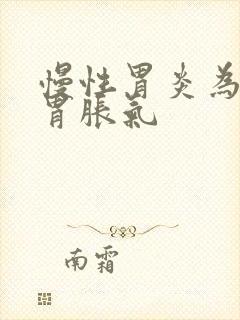 慢性胃炎為
胃脹氣
南霜